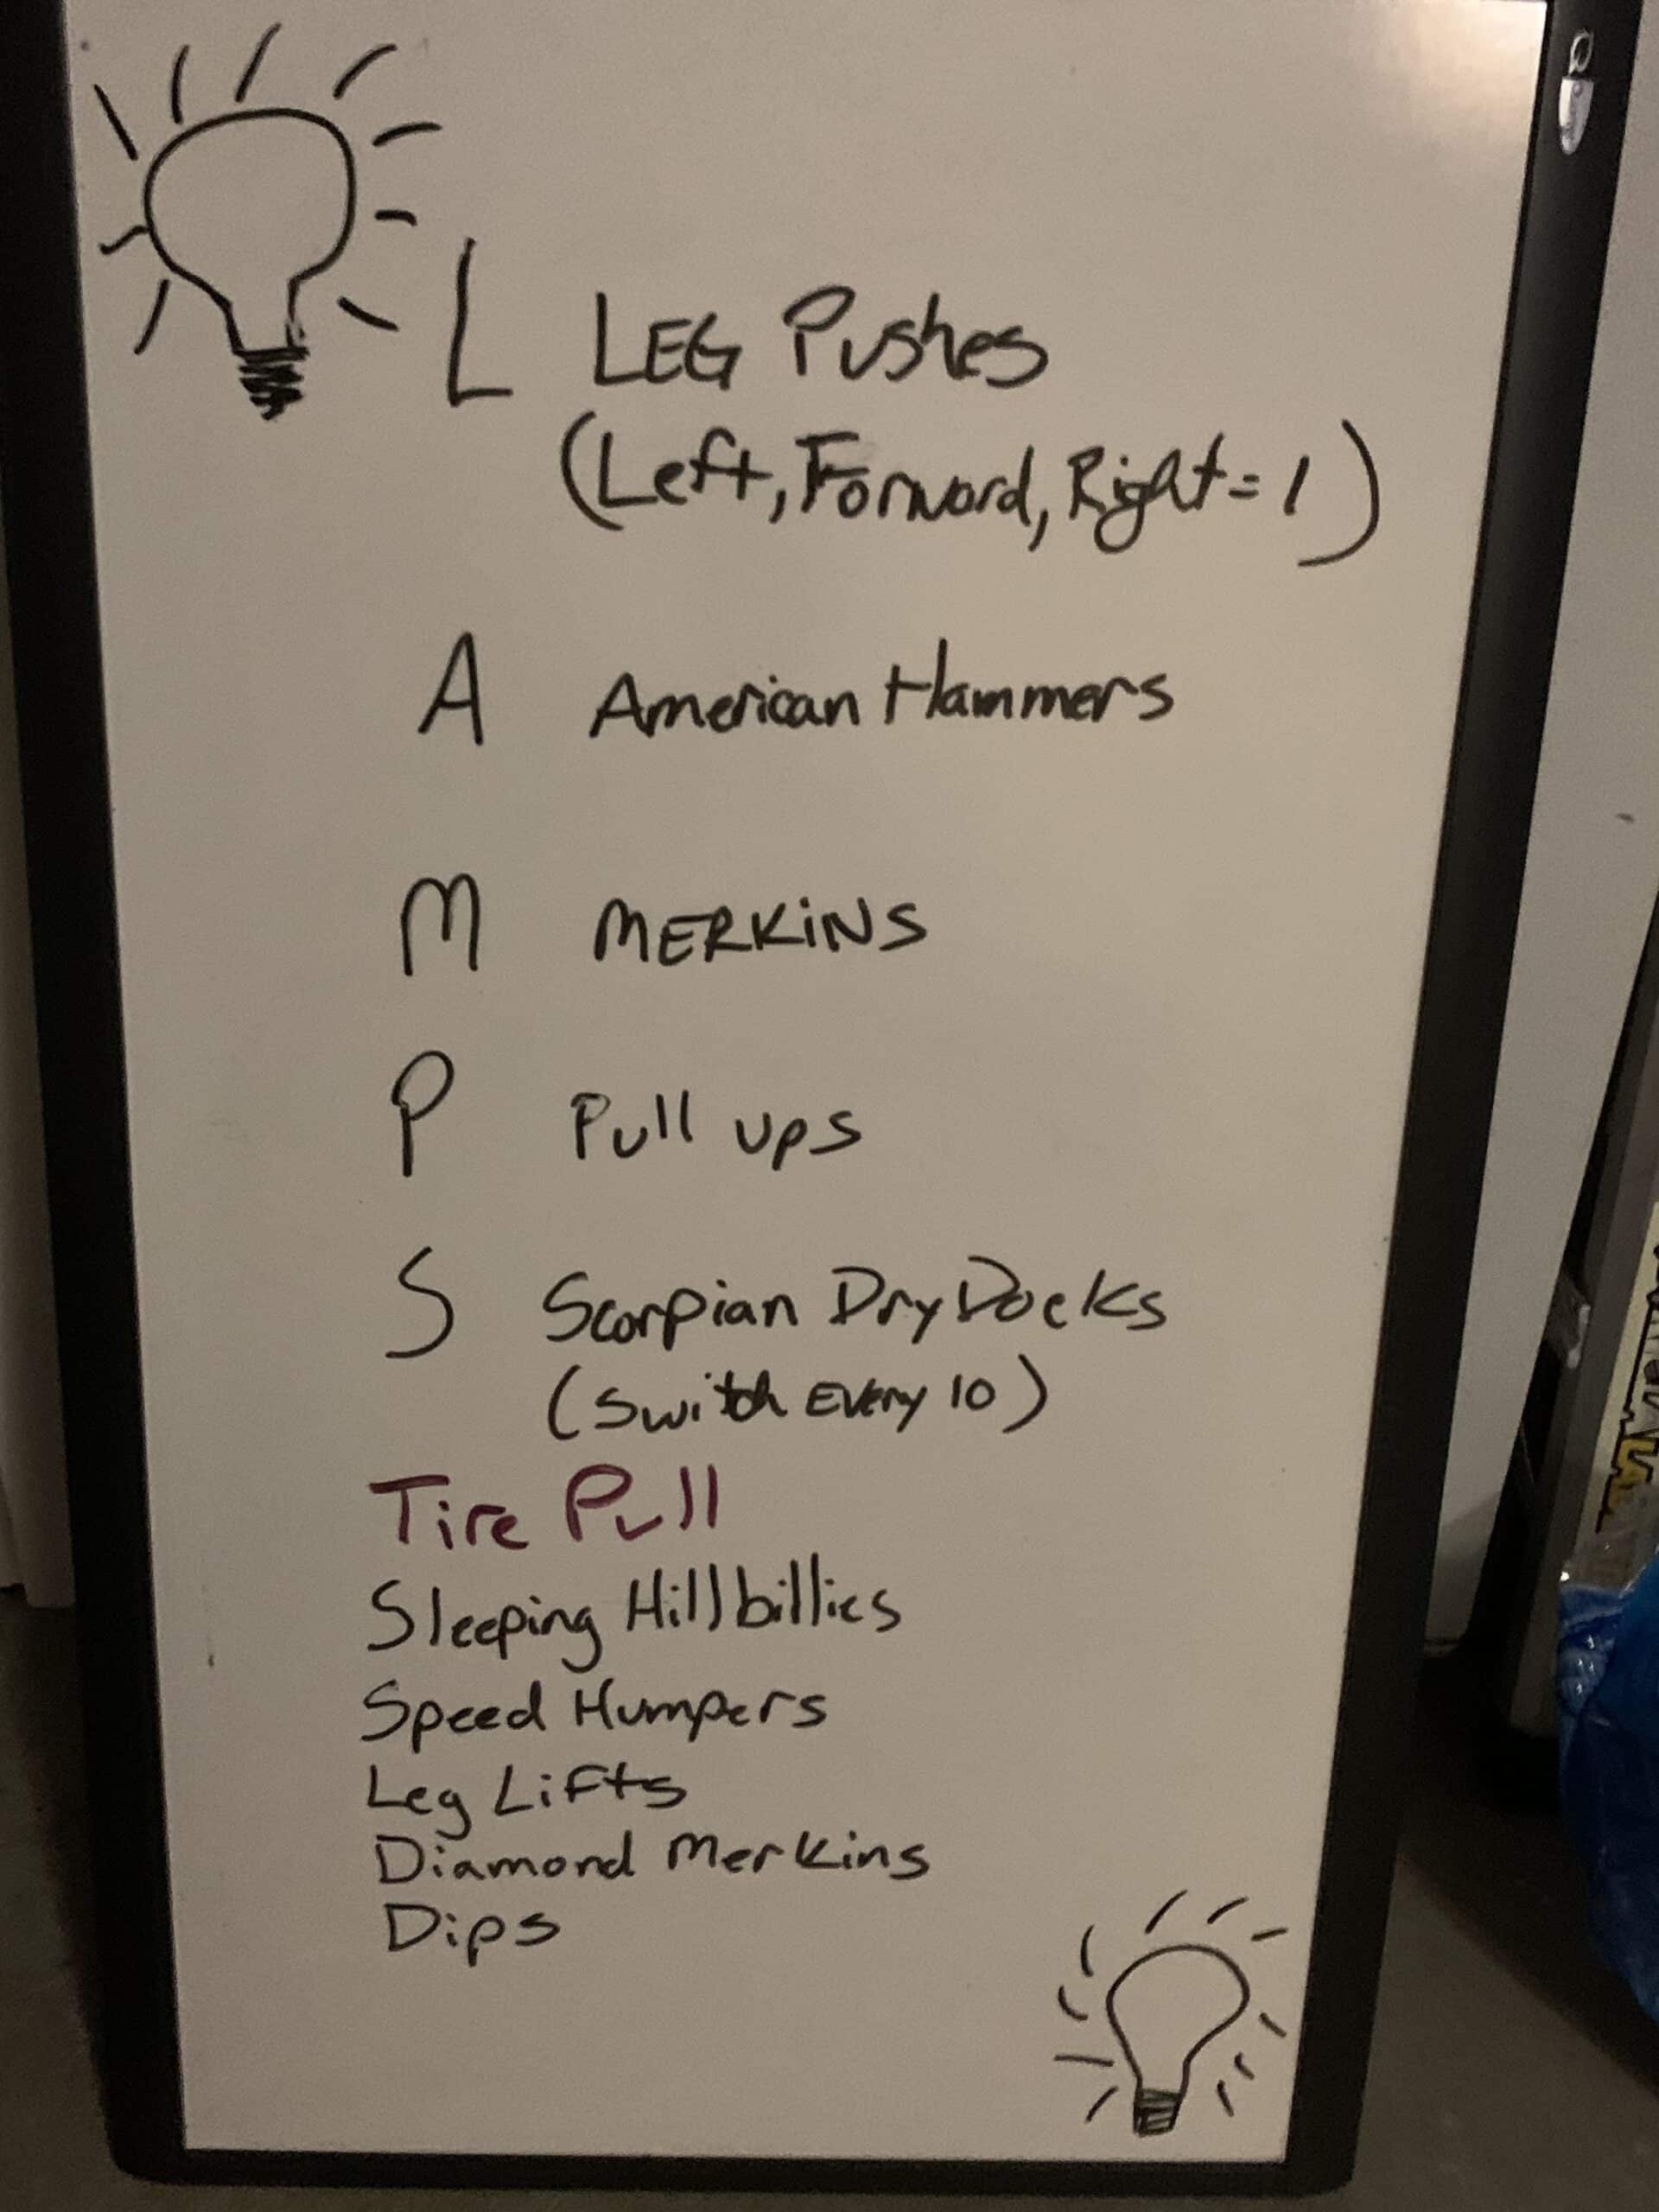 L LEG Pushes
(Left, Forward, Right = 1)
A American Hammers
M MERKiNS
P Pull ups
S Scorpian Dry Docks
(Switch Every 10)
Tire Pull
Sleeping Hillbillies
Speed Humpers
Leg Lifts
Diamond Merkins
Dips